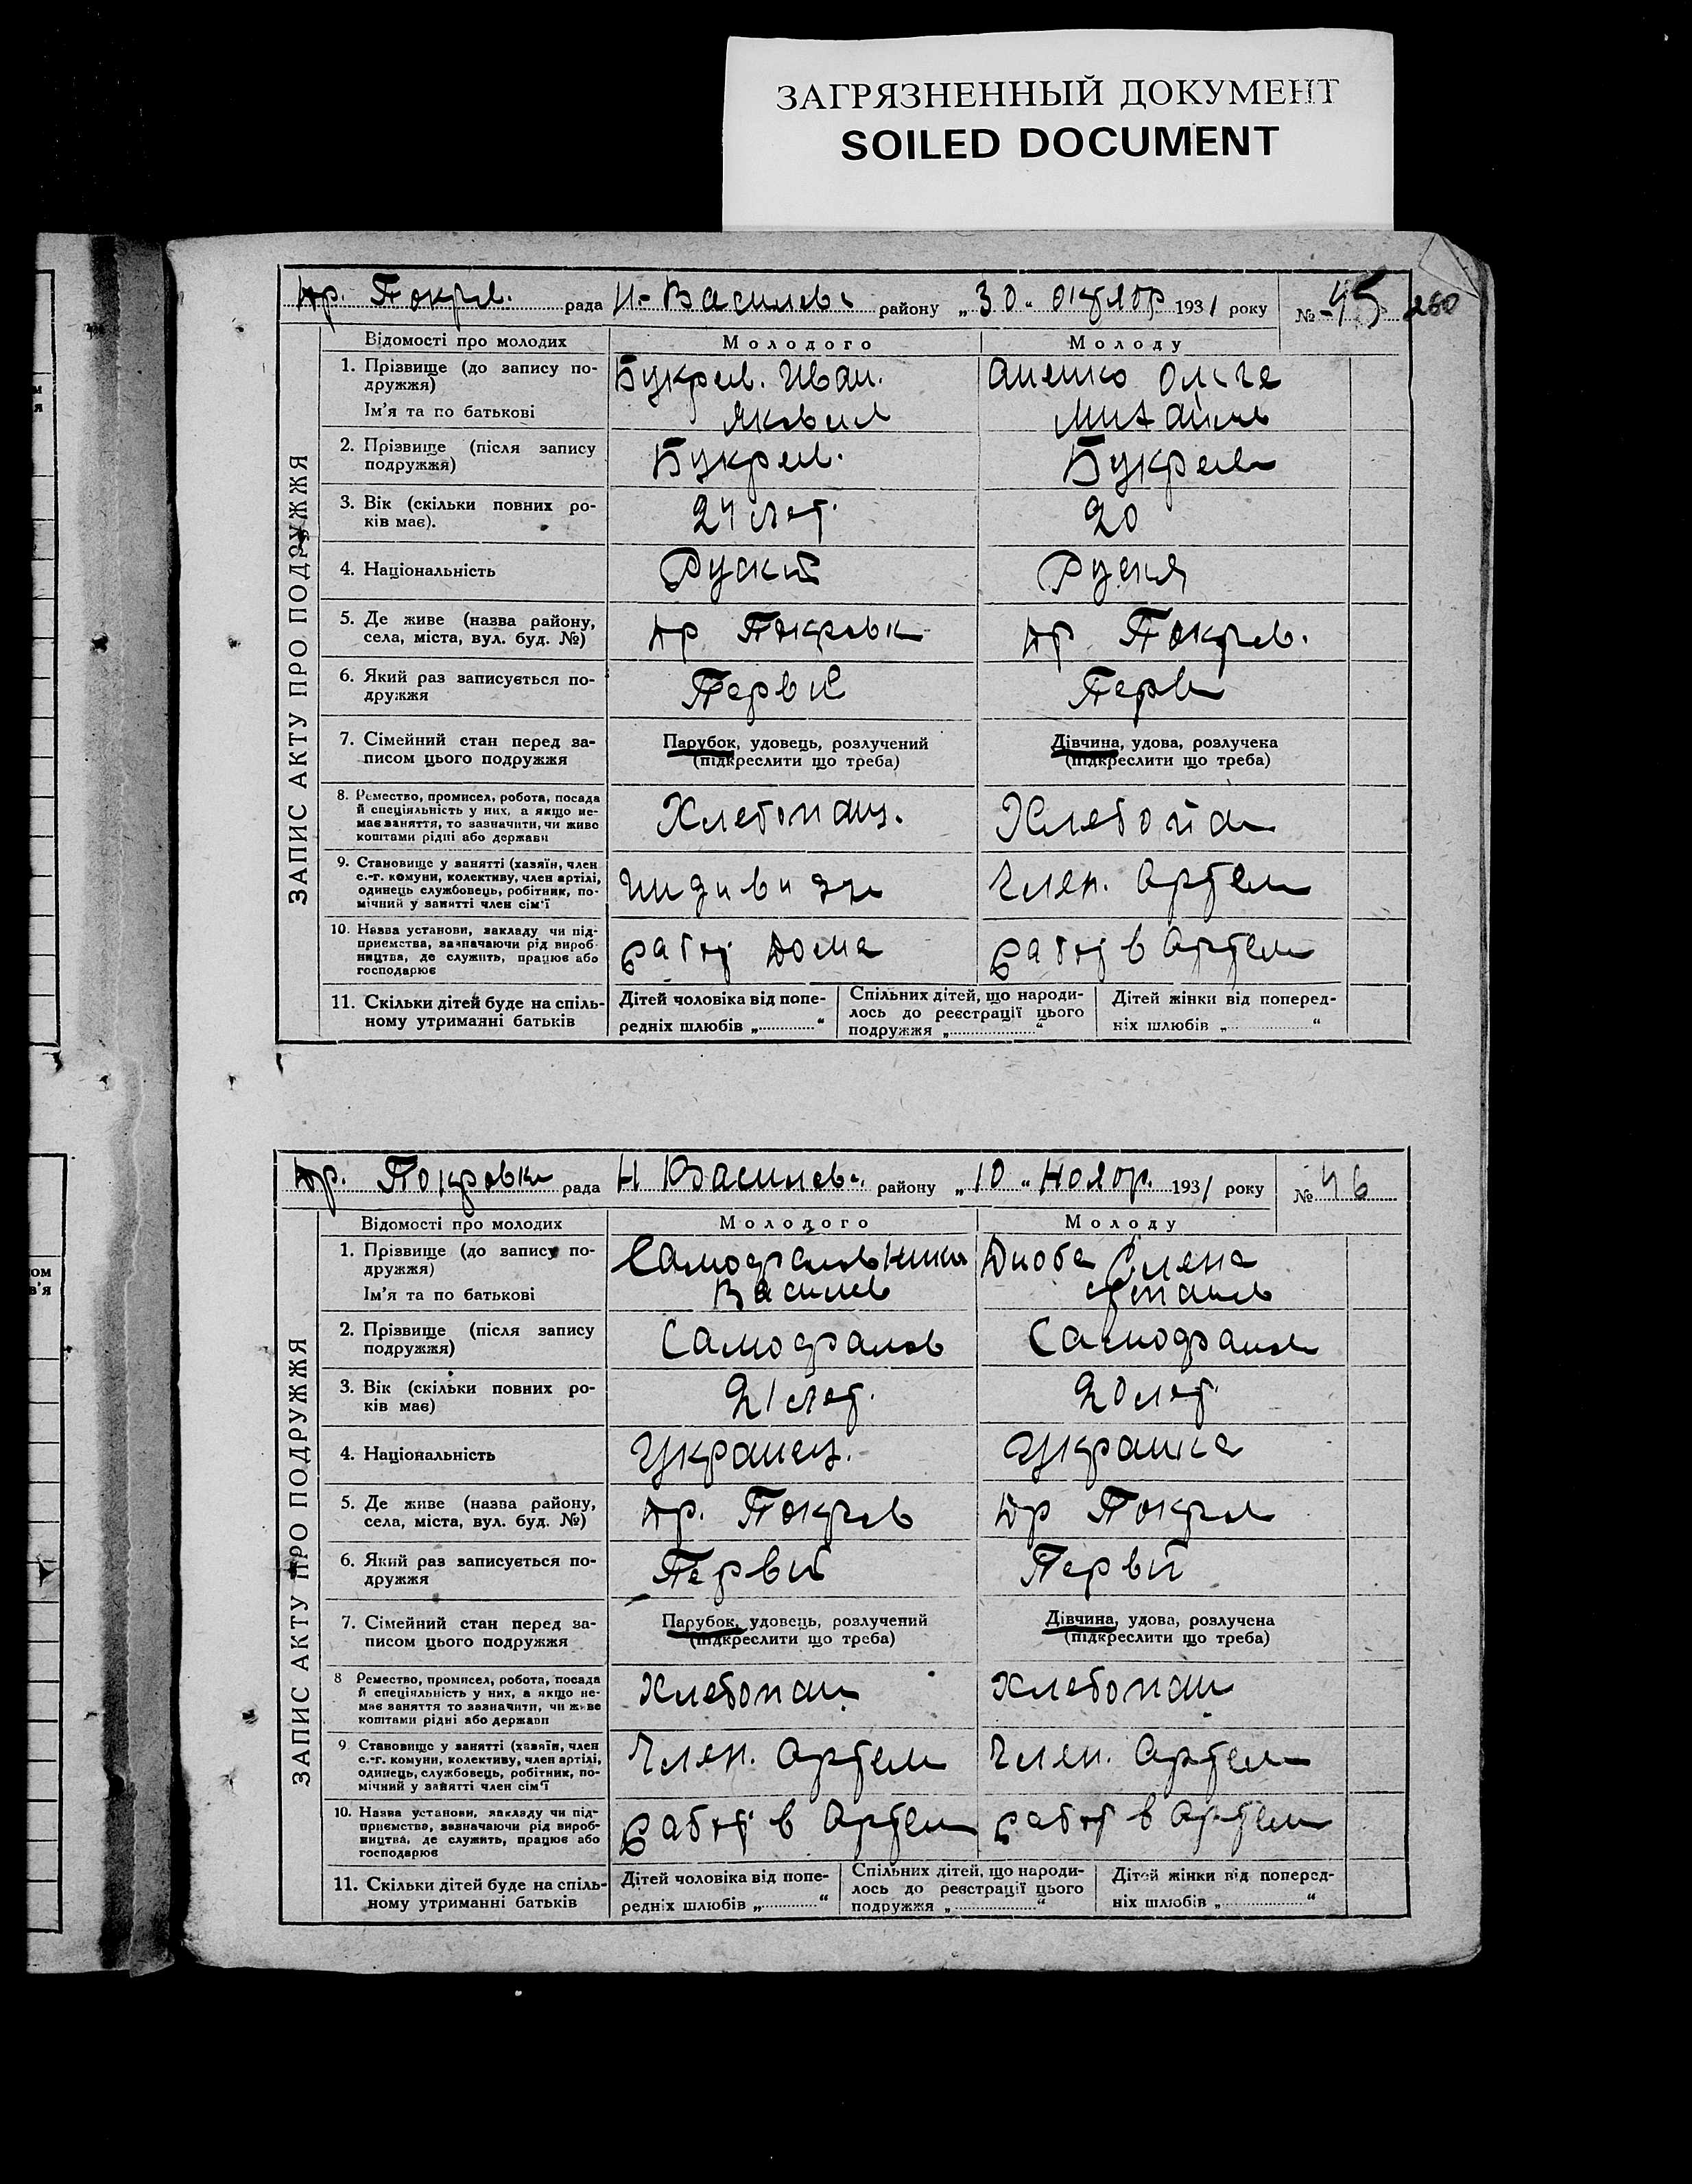 ЗАГРЯЗНЕННЫЙ ДОКУМЕНТ
SOILED DOCUMENT
ЗАПИС АКТУ ПРО ПОДРУЖЖЯ
рада Н-Василев району „30“ октябр 1931 року № 45 260
Відомості про молодих Молодого Молоду
1. Прізвище (до запису по-
дружжя)
Ім'я та по батькові
Иван.
Михайлов
2. Прізвище (після запису
подружжя)
3. Вік (скільки повних ро-
ків має).
24 лет. 20
4. Національність
5. Де живе (назва району,
села, міста, вул. буд. №)
Покровк Покров.
6. Який раз записується по-
дружжя
Первий Перв
7. Сімейний стан перед за-
писом цього подружжя
Парубок, удовець, розлучений
(підкреслити що треба)
Дівчина, удова, розлучена
(підкреслити що треба)
8. Ремество, промисел, робота, посада
й спеціяльність у них, а якщо не-
має заняття, то зазначити, чи живе
коштами рідні або держави
Хлебопаш.
9. Становище у занятті (хазяїн, член
с.-г. комуни, колективу, член артілі,
одинець службовець, робітник, по-
мічний у занятті член сім'ї
Член. Артели
10. Назва установи, закладу чи під-
приємства, зазначаючи рід вироб-
ництва, де служить, працює або
господарює
работ Дома работ в Артели
11. Скільки дітей буде на спіль-
ному утриманні батьків
Дітей чоловіка від попе-
редніх шлюбів „ “
Спільних дітей, що народи-
лось до реєстрації цього
подружжя „ “
Дітей жінки від поперед-
ніх шлюбів „ “
ЗАПИС АКТУ ПРО ПОДРУЖЖЯ
Покровки рада Н Василев. району „10“ Ноябр. 1931 року № 46
Відомості про молодих Молодого Молоду
1. Прізвище (до запису по-
дружжя)
Ім'я та по батькові
Елена
Василев
2. Прізвище (після запису
подружжя)
Самофалов Самофалов
3. Вік (скільки повних ро-
ків має)
21 лет. 20 лет
4. Національність
Украинец. Украинка
5. Де живе (назва району,
села, міста, вул. буд. №)
Покров Покров
6. Який раз записується по-
дружжя
Первий Первий
7. Сімейний стан перед за-
писом цього подружжя
Парубок, удовець, розлучений
(підкреслити що треба)
Дівчина, удова, розлучена
(підкреслити що треба)
8 Ремество, промисел, робота, посада
й спеціяльність у них, а якщо не-
має заняття то зазначити, чи живе
коштами рідні або держави
Хлебопаш Хлебопаш
9. Становище у занятті (хазяїн, член
с.-г. комуни, колективу, член артілі,
одинець, службовець, робітник, по-
мічний у занятті член сім'ї
Член. Артели Член. Артели
10. Назва установи, закладу чи під-
приємства, зазначаючи рід вироб-
ництва, де служить, працює або
господарює
работ в Артели работ в Артели
11. Скільки дітей буде на спіль-
ному утриманні батьків
Дітей чоловіка від попе-
редніх шлюбів „ “
Спільних дітей, що народи-
лось до реєстрації цього
подружжя „ “
Дітей жінки від поперед-
ніх шлюбів „ “